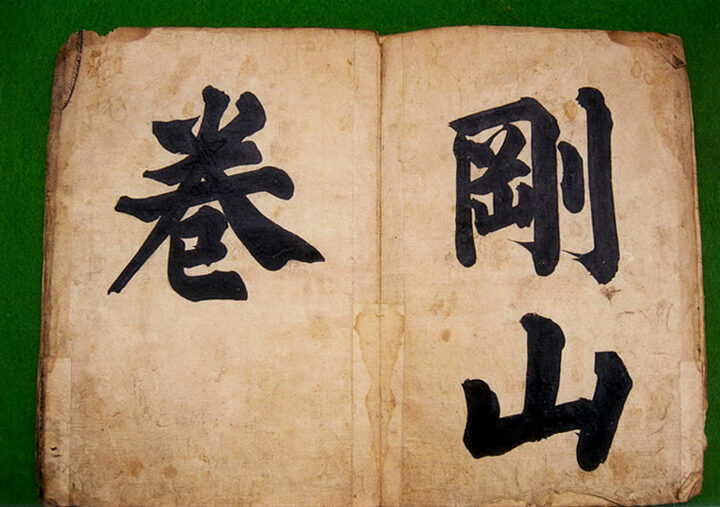 剛山
巻